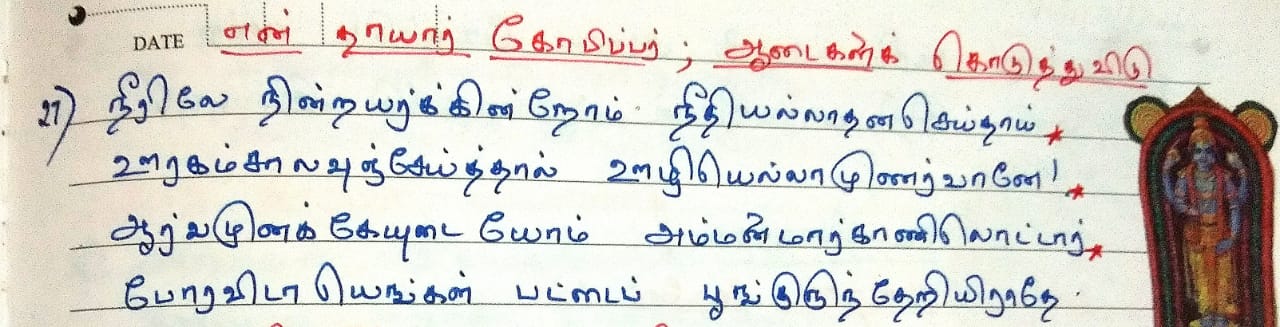 DATE என் தாயார் கோபிப்பர் ; ஆடைகள்க் கொடுத்துவிடு
27) நீரிலே நின்றயர்க்கின்றோம் நீதியல்லாதன செய்தாய் *
ஊரகம்சாலவுஞ்சேய்த்தால் ஊழியெல்லாமுணர்வானே! *
ஆர்வமுனக்கேயுடையோம் அம்மன்மார்காணிலொட்டார் *
போரவிடாயெங்கள் பட்டைப் பூங்குருந்தேறியிராதே .